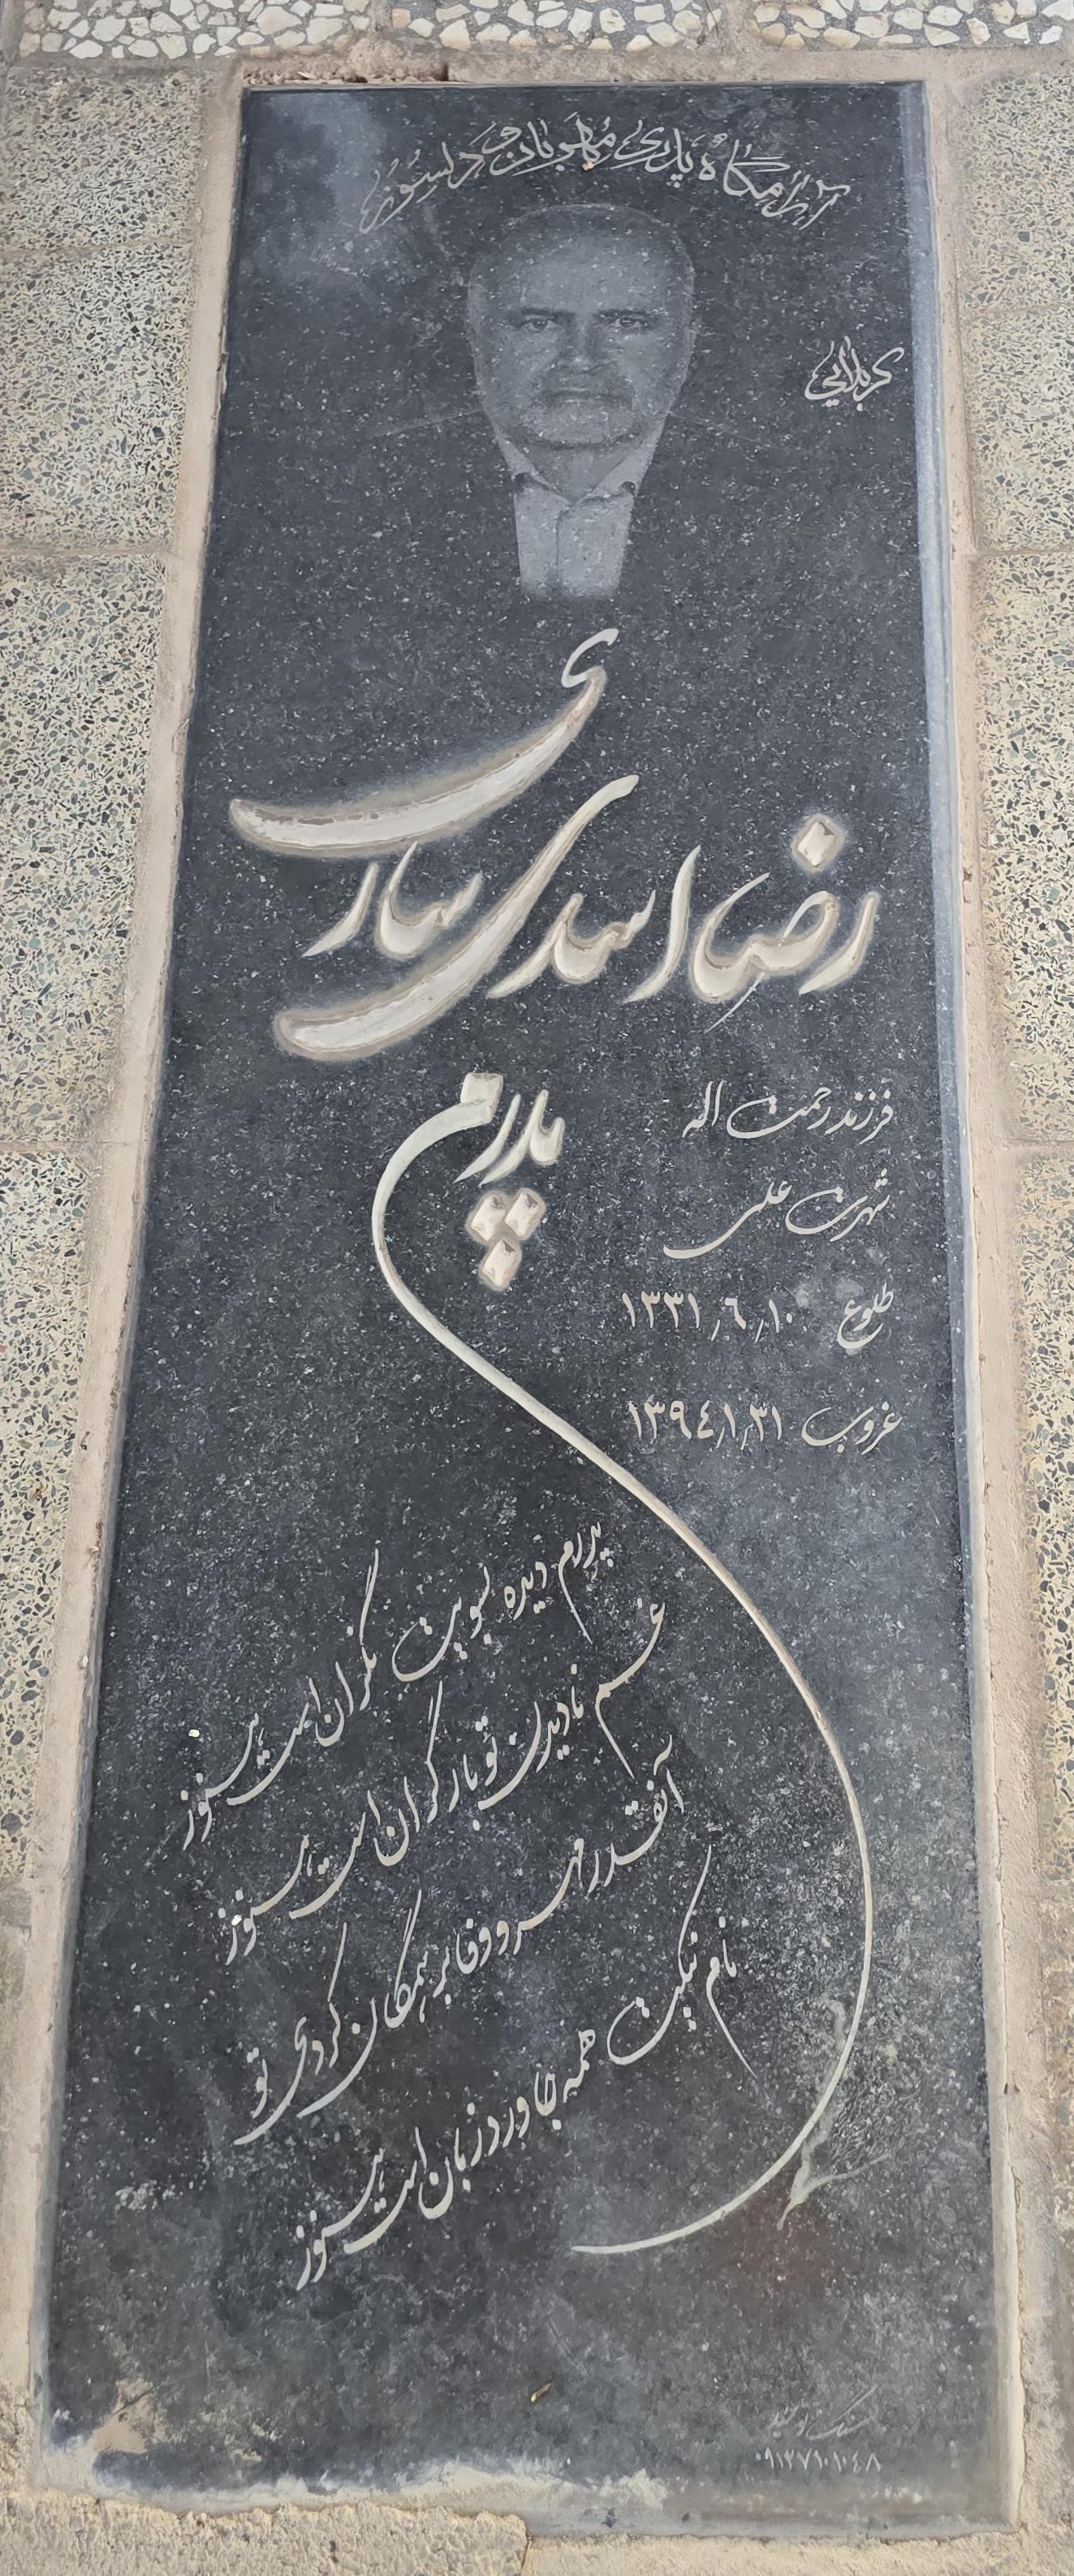 آرامگاه پدری مهربان و دلسوز
کربلایی
رضا اسدی ساری
فرزند رحمت اله
شهرت علی
طلوع ۱۳۳۱٫۶٫۱۰
غروب ۱۳۹۴٫۱٫۳۱
پدرم
پدرم دیده بسویت نگران است هنوز
غم نادیدن تو بار گران است هنوز
آنقدر مهر و وفا بر همگان کردی تو
نام نیکت همه جا ورد زبان است هنوز
سنگ
۰۹۱۳۷۱۰۱۰۴۸